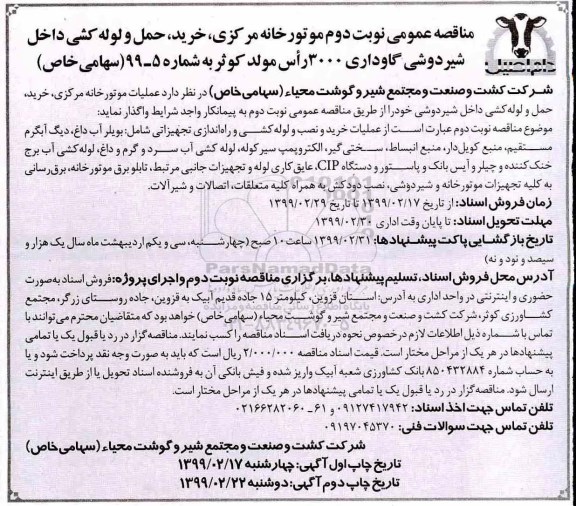 مناقصه عمومی نوبت دوم موتورخانه مرکزی، خرید، حمل و لوله کشی داخل
شیردوشی گاوداری ۳۰۰۰رأس مولد کوثر به شماره ۵ـ۹۹(سهامی خاص)
دام اصیل
شرکت کشت وصنعت و مجتمع شیر و گوشت محیاء (سهامی خاص) در نظر دارد عملیات موتورخانه مرکزی، خرید،
حمل و لوله کشی داخل شیردوشی خود را از طریق مناقصه عمومی نوبت دوم به پیمانکار واجد شرایط واگذار نماید:
موضوع مناقصه نوبت دوم عبارت است از عملیات خرید و نصب و لوله کشی و راه‌اندازی تجهیزاتی شامل: بویلر آب داغ، دیگ آبگرم
مستقیم، منبع کویل‌دار، منبع انبساط، سختی گیر، الکتروپمپ سیرکوله، لوله کشی آب سرد و گرم و داغ، لوله کشی آب برج
خنک کننده و چیلر و آیس بانک و پاستور و دستگاه CIP، عایق کاری لوله و تجهیزات جانبی مرتبط، تابلو برق موتورخانه، برق‌رسانی
به کلیه تجهیزات موتورخانه و شیردوشی، نصب دودکش به همراه کلیه متعلقات، اتصالات و شیرآلات.
زمان فروش اسناد: از تاریخ ۱۳۹۹/۰۲/۱۷ تا تاریخ ۱۳۹۹/۰۲/۲۹
مهلت تحویل اسناد: تا پایان وقت اداری ۱۳۹۹/۰۲/۳۰
تاریخ بازگشایی پاکت پیشنهادها: ۱۳۹۹/۰۲/۳۱ ساعت ۱۰ صبح (چهارشنبه، سی و یکم اردیبهشت ماه سال یک هزار و
سیصد و نود و نه)
آدرس محل فروش اسناد، تسلیم پیشنهادها، برگزاری مناقصه نوبت دوم و اجرای پروژه: فروش اسناد به صورت
حضوری و اینترنتی در واحد اداری به آدرس: استان قزوین، کیلومتر ۱۵ جاده قدیم آبیک به قزوین، جاده روستای زرگر، مجتمع
کشاورزی کوثر، شرکت کشت و صنعت و مجتمع شیر و گوشت محیاء (سهامی خاص) خواهد بود که متقاضیان محترم می‌توانند با
تماس با شماره ذیل اطلاعات لازم در خصوص نحوه دریافت اسناد مناقصه را کسب نمایند. مناقصه گزار در رد یا قبول یک یا تمامی
پیشنهادها در هر یک از مراحل مختار است. قیمت اسناد مناقصه ۲/۰۰۰/۰۰۰ ریال است که باید به صورت وجه نقد پرداخت شود و یا
به حساب شماره ۸۵۰۴۳۲۸۸۴ بانک کشاورزی شعبه آبیک واریز شده و فیش بانکی آن به فروشنده اسناد تحویل یا از طریق اینترنت
ارسال شود. مناقصه گزار در رد یا قبول یک یا تمامی پیشنهادها در هر یک از مراحل مختار است.
تلفن تماس جهت اخذ اسناد: ۰۹۱۲۷۴۱۷۹۴۲ و ۶۱ ـ ۰۲۱۶۶۲۸۲۰۶۰
تلفن تماس جهت سوالات فنی: ۰۹۱۹۷۰۴۵۳۷۰
شرکت کشت وصنعت و مجتمع شیر و گوشت محیاء (سهامی خاص)
تاریخ چاپ اول آگهی: چهارشنبه ۱۳۹۹/۰۲/۱۷
تاریخ چاپ دوم آگهی: دوشنبه ۱۳۹۹/۰۲/۲۲
ParsNamadData